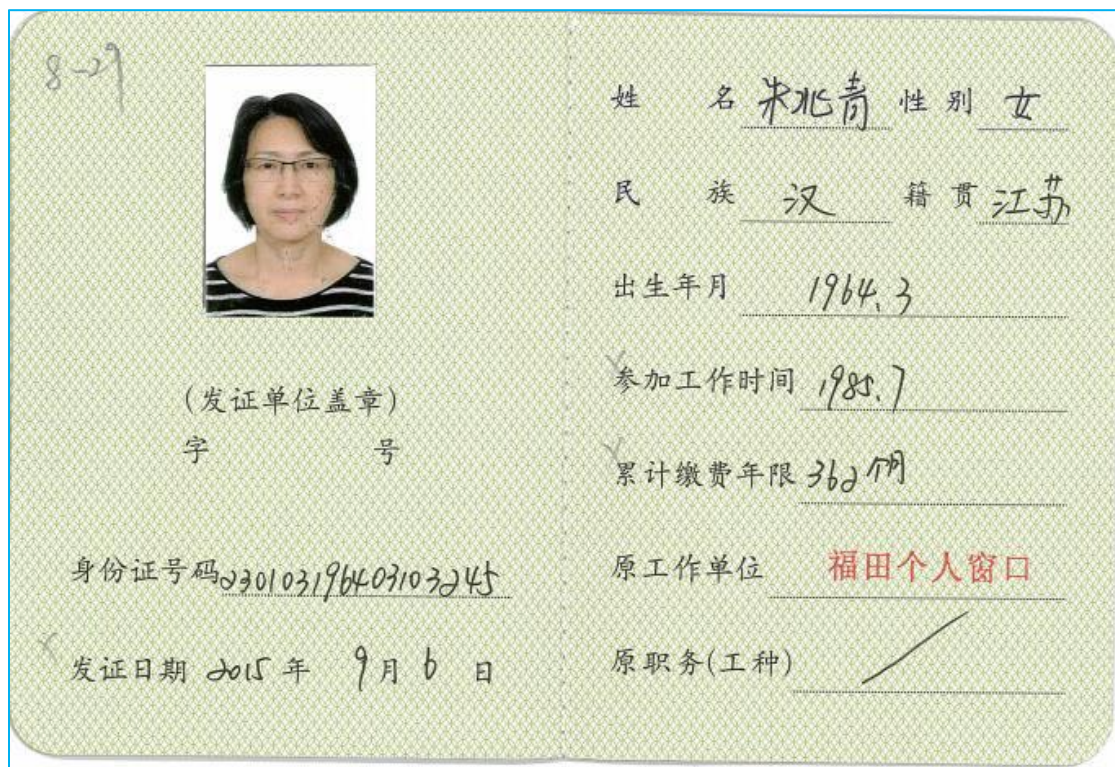 8-29
(发证单位盖章)
字 号
身份证号码 230103196403103245
发证日期 2015 年 9 月 6 日
姓 名 朱兆青 性别 女
民 族 汉 籍贯 江苏
出生年月 1964.3
参加工作时间 1985.7
累计缴费年限 362个月
原工作单位 福田个人窗口
原职务(工种)